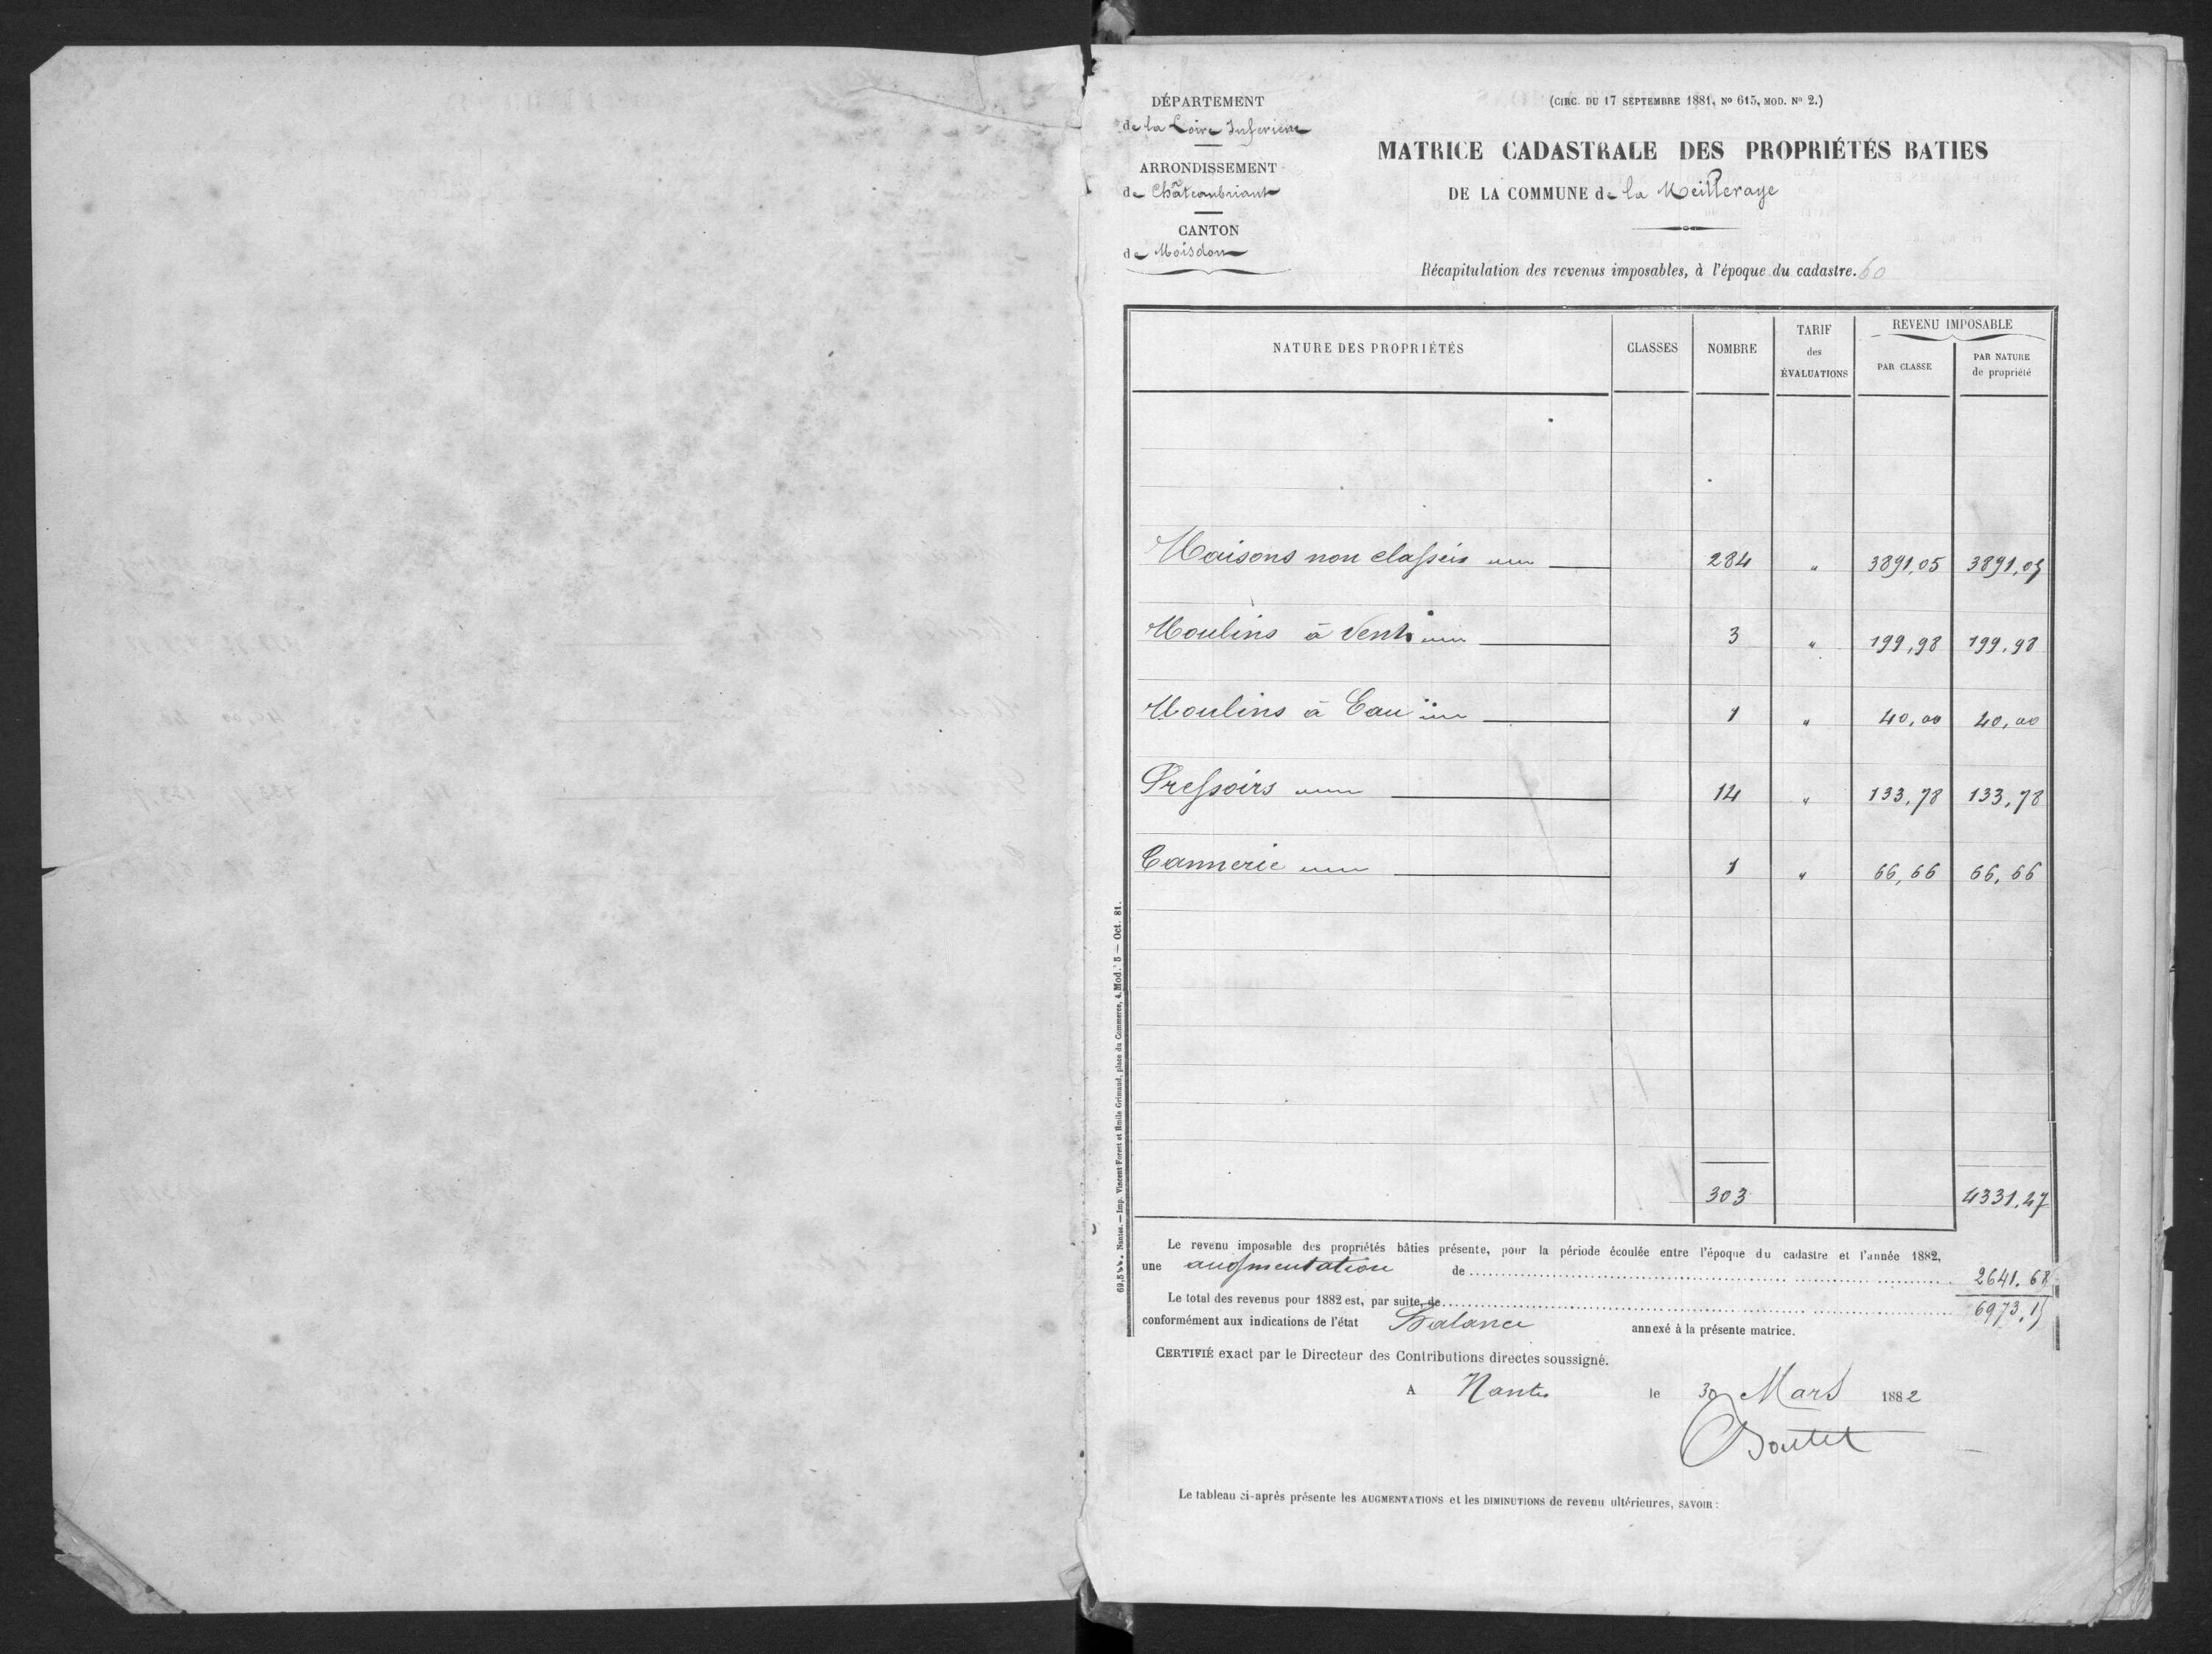 DÉPARTEMENT
de la Loire Inferieure
ARRONDISSEMENT
de Châteaubriant
CANTON
de Moisdon
(CIRC. DU 17 SEPTEMBRE 1881, No 615, MOD. No 2.)
MATRICE CADASTRALE DES PROPRIÉTÉS BATIES
DE LA COMMUNE de la Meilleraye
Récapitulation des revenus imposables, à l'époque du cadastre. 60
NATURE DES PROPRIÉTÉS CLASSES NOMBRE TARIF des ÉVALUATIONS REVENU IMPOSABLE PAR CLASSE PAR NATURE de propriété
Maisons non classées 284 " 3891,05 3891,05
Moulins à Vent 3 " 199,98 199,98
Moulins à Eau 1 " 40,00 40,00
Pressoirs 14 " 133,78 133,78
Tannerie 1 " 66,66 66,66
303 4331,47
Le revenu imposable des propriétés bâties présente, pour la période écoulée entre l'époque du cadastre et l'année 1882,
une augmentation de 2641.68
Le total des revenus pour 1882 est, par suite, de 6973.15
conformément aux indications de l'état Balance annexé à la présente matrice.
CERTIFIÉ exact par le Directeur des Contributions directes soussigné.
A Nantes le 30 Mars 1882
Boutet
Le tableau ci-après présente les AUGMENTATIONS et les DIMINUTIONS de revenu ultérieures, SAVOIR :
Nantes. — Imp. Vincent Forest et Emile Grimaud, place du Commerce, 4. Mod. 5 — Oct. 81.